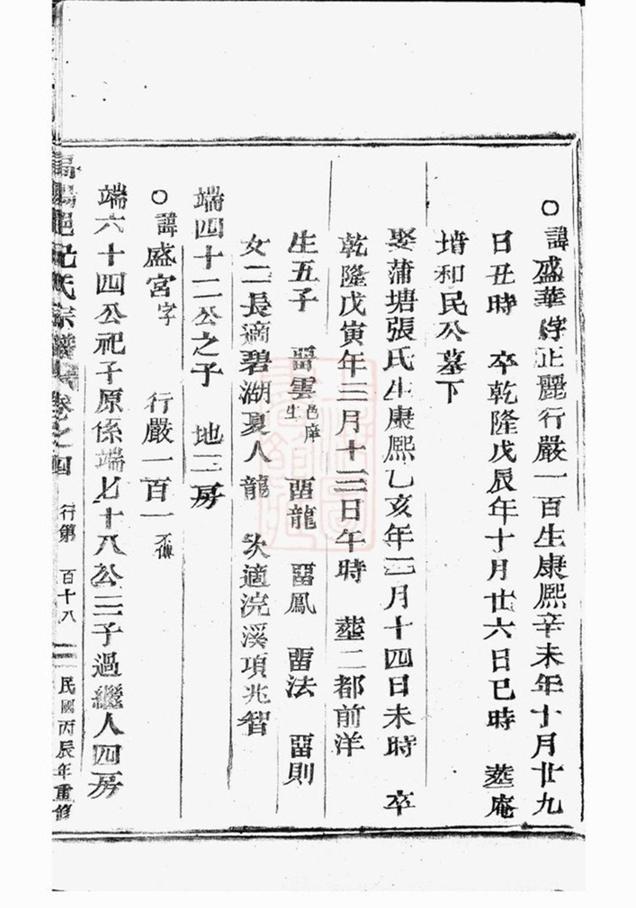 ○諱盛華字正麗行嚴一百生康熙辛未年十月廿九
日丑時 卒乾隆戊辰年十月廿六日巳時 葬庵
塆和民公墓下
娶蒲塘張氏生康熙乙亥年三月十四日未時 卒
乾隆戊寅年三月十三日午時 葬二都前洋
生五子 畱雲邑庠生 畱龍 畱鳳 畱法 畱則
女二長適碧湖夏人龍 次適浣溪項兆智
端四十二公之子 地三房
○諱盛宮字 行嚴一百一 不傳
端六十四公祀子原係端七十八公三子過繼人四房
氏宗譜 卷之四 行第 百十八 民國丙辰年重修